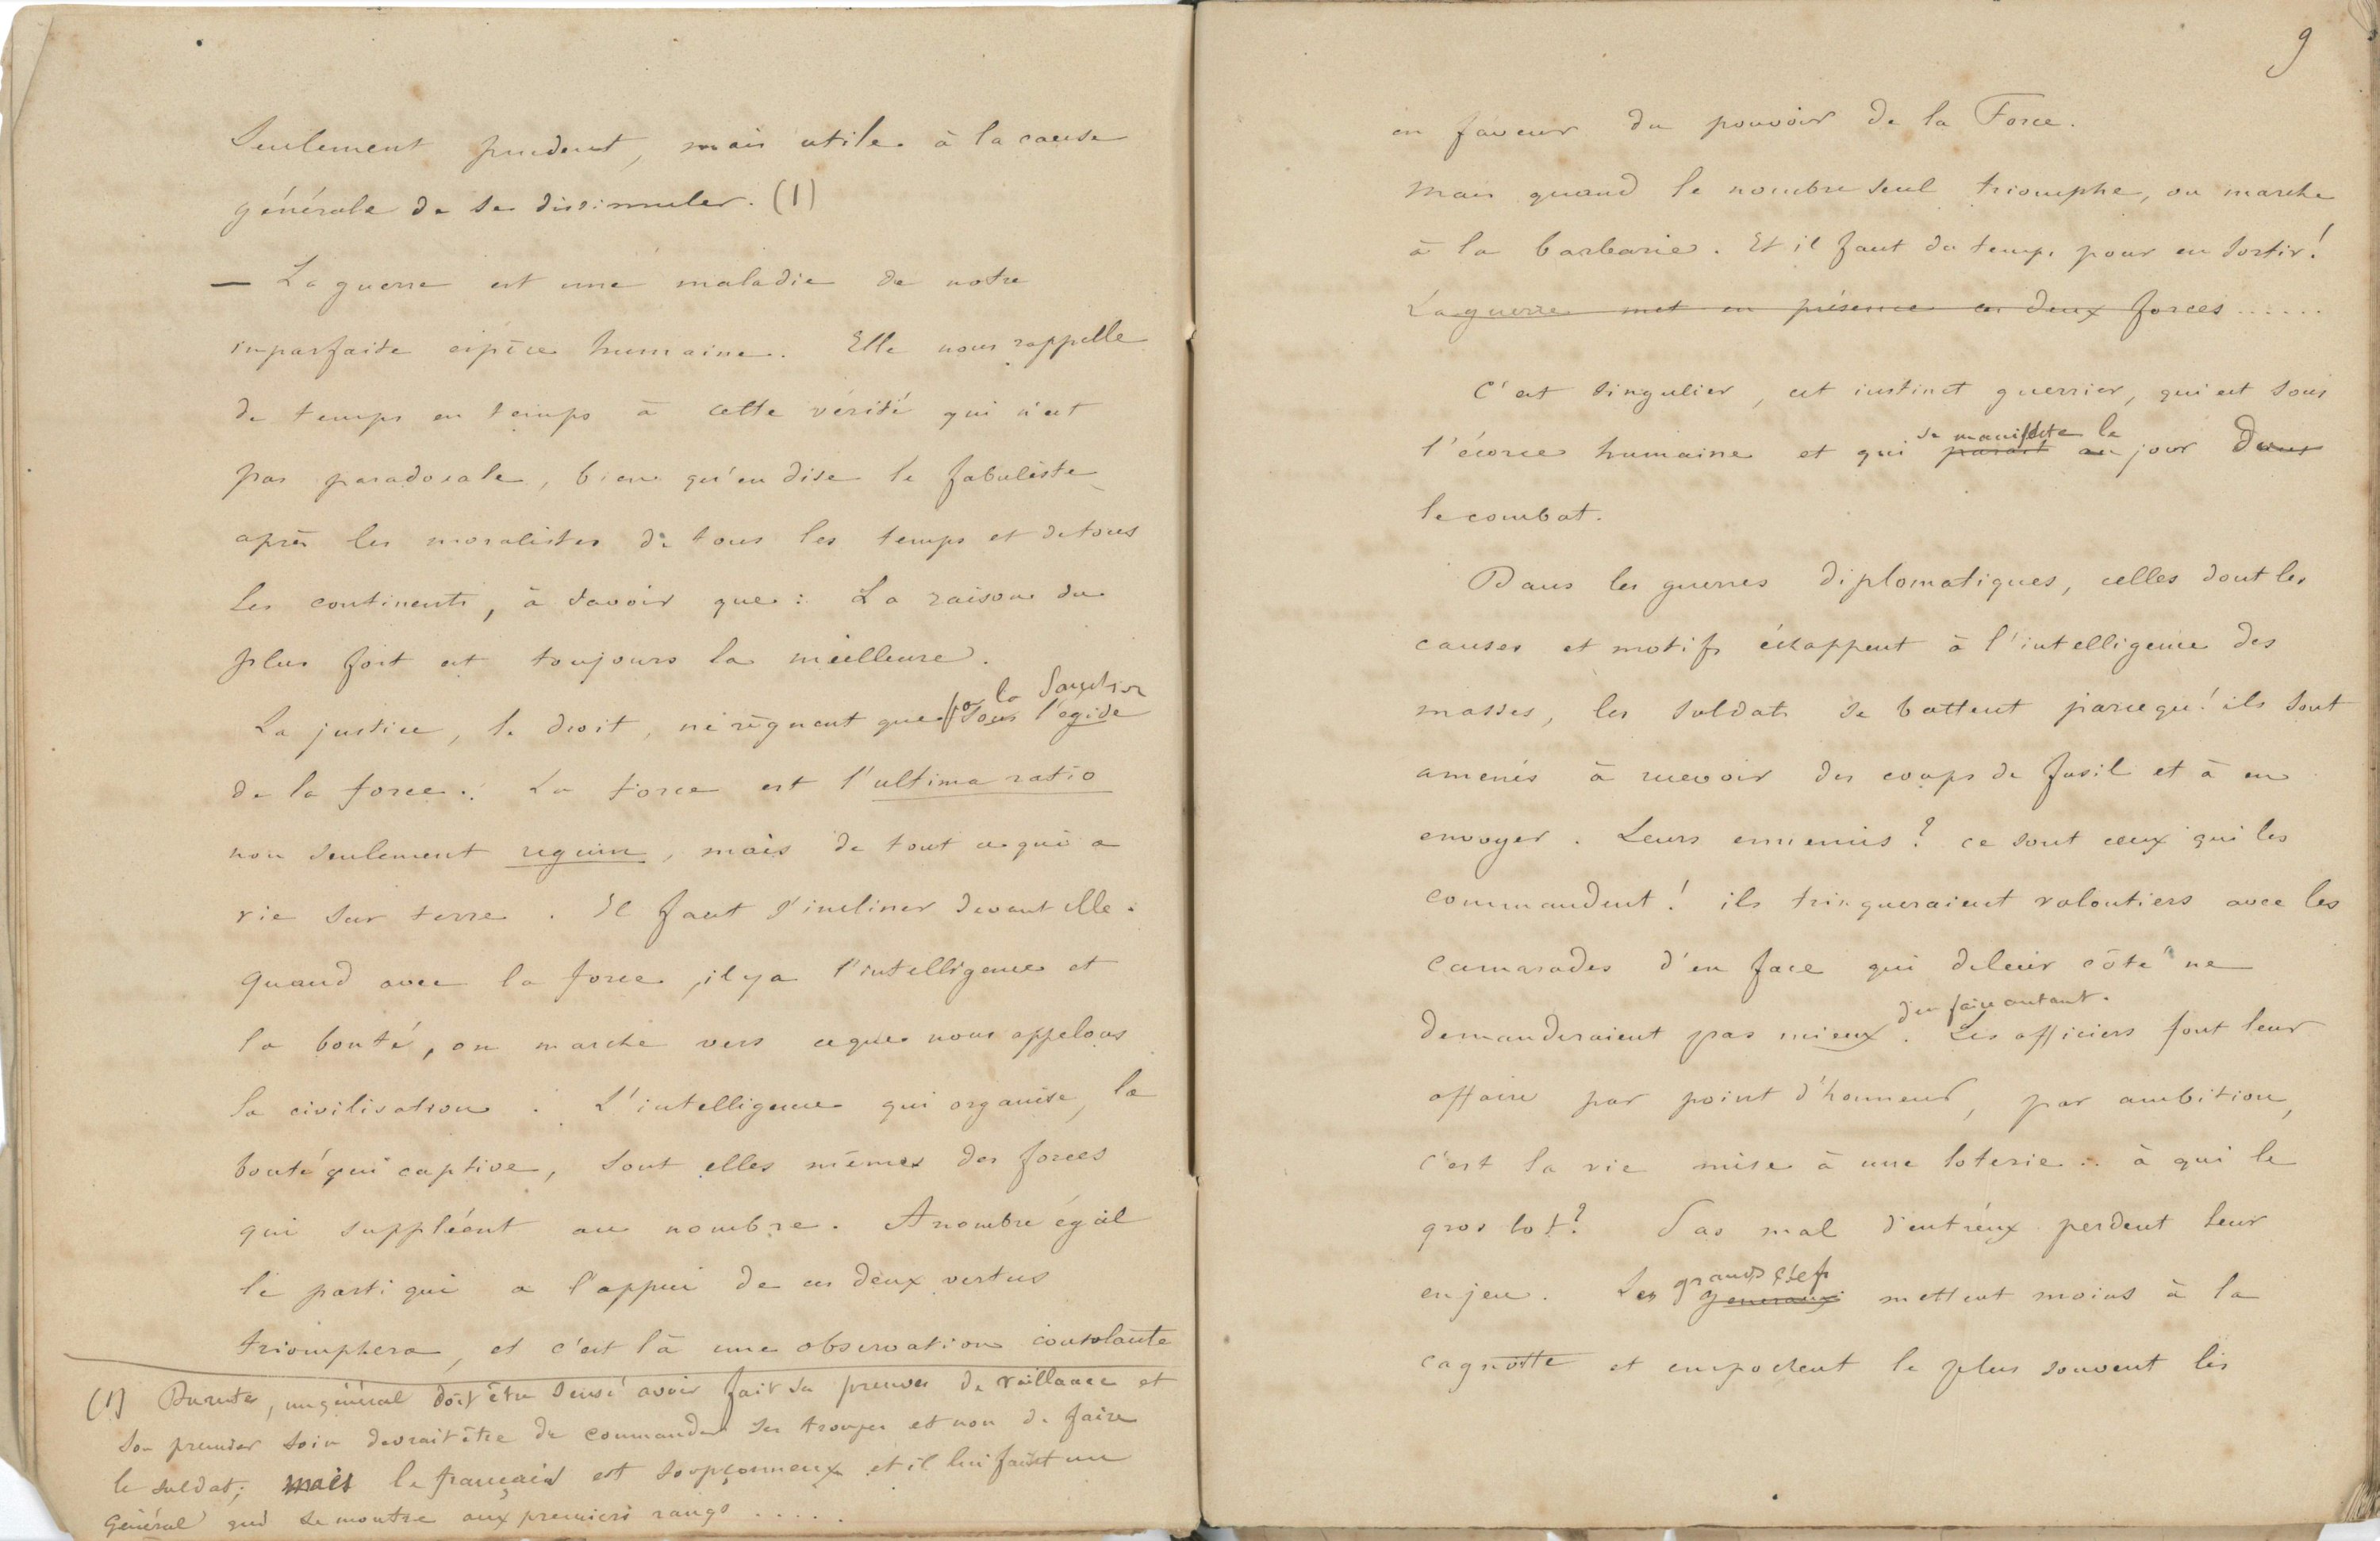 Seulement prudent, mais utile à la cause
générale de se dissimuler. (1)
— La guerre est une maladie de notre
imparfaite espèce humaine. Elle nous rappelle
de temps en temps à cette vérité qui n'est
pas paradoxale, bien qu'en dise le fabuliste
après les moralistes de tous les temps et de tous
les continents, à savoir que : La raison du
plus fort est toujours la meilleure.
par la sanction
La justice, le droit, ne règnent que sous l'égide
de la force. La force est l'ultima ratio
non seulement regum, mais de tout ce qui a
vie sur terre. Il faut s'incliner devant elle.
Quand avec la force, il y a l'intelligence et
la bonté, on marche vers ce que nous appelons
la civilisation. L'intelligence qui organise, la
bonté qui captive, sont elles mêmes des forces
qui suppléent au nombre. A nombre égal
le parti qui a l'appui de ces deux vertus
triomphera, et c'est là une observation consolante
(1) un général doit être sensé avoir fait ses preuves de vaillance et
son premier soin devrait être de commander ses troupes et non de faire
le soldat; mais le français est soupçonneux et il lui faut un
Général qui se montre aux premiers rangs .....
9
en faveur du pouvoir de la Force.
Mais quand le nombre seul triomphe, on marche
à la barbarie. Et il faut du temps pour en sortir!
La guerre met en présence ces deux forces ......
C'est singulier, cet instinct guerrier, qui est sous
se manifeste le
l'écorce humaine et qui parait au jour Dans
le combat.
Dans les guerres diplomatiques, celles dont les
causes et motifs échappent à l'intelligence des
masses, les soldats se battent parcequ'ils sont
amenés à recevoir des coups de fusil et à en
envoyer. Leurs ennemis? ce sont ceux qui les
commandent! ils trinqueraient volontiers avec les
camarades d'en face qui de leur côté ne
d'en faire autant.
demanderaient pas mieux. Les officiers font leur
affaire par point d'honneur, par ambition,
c'est la vie mise à une loterie .. à qui le
gros lot? Pas mal d'entr'eux perdent leur
grands chefs
enjeu. Les généraux mettent moins à la
cagnotte et empochent le plus souvent les